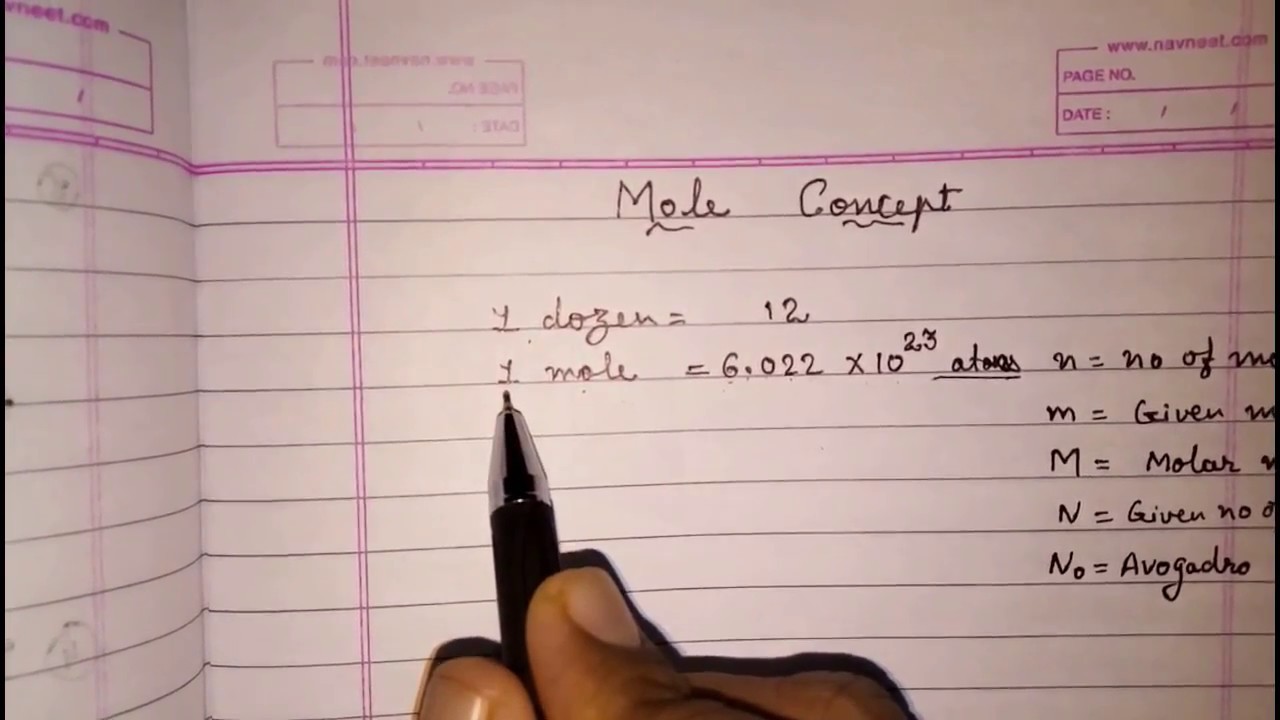 vneet.com
www.navneet.com
PAGE NO.
DATE: / /
Mole Concept
1 dozen = 12
1 mole = 6.022 × 10²³ atoms n = no of mo
m = Given m
M = Molar
N = Given no o
N₀ = Avogadro